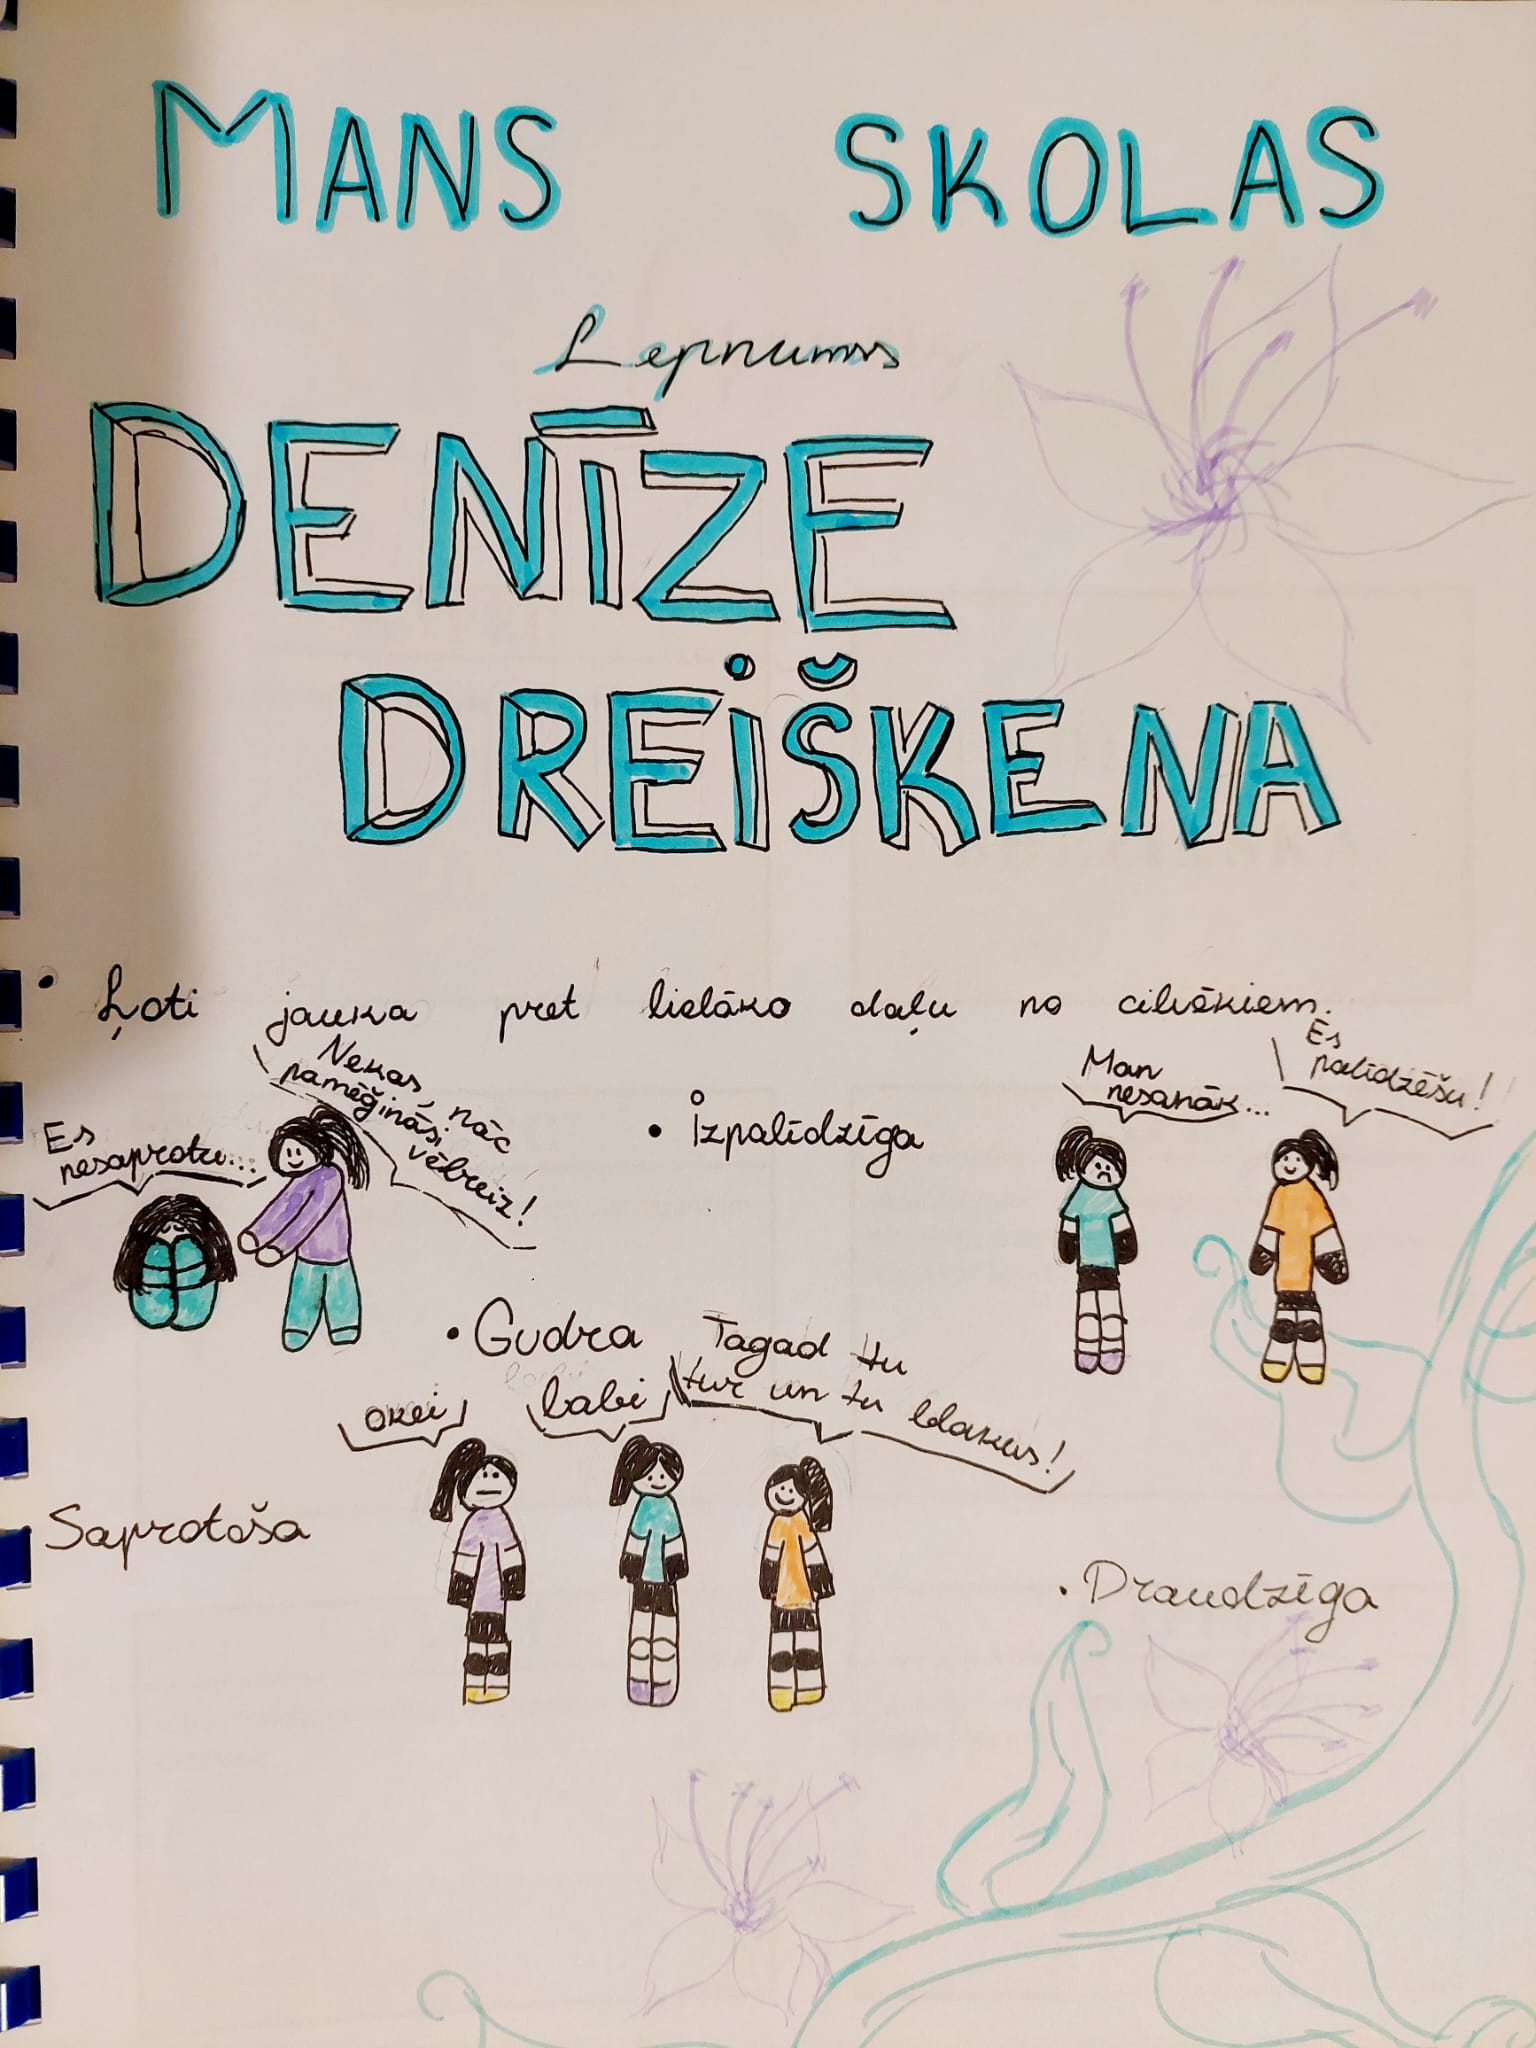 MANS SKOLAS
Lepnums
DENĪZE
DREIŠKENA
• Ļoti jauka pret lielāko daļu no cilvēkiem.
Es
nesaprotu...
Nekas, nāc
pamēģināsi
vēlreiz!
• Izpalīdzīga
Man
nesanāk...
Es
palīdzēšu!
• Gudra
okei
labi
Tagad tu
tur un tu blakus!
Saprotoša
• Draudzīga